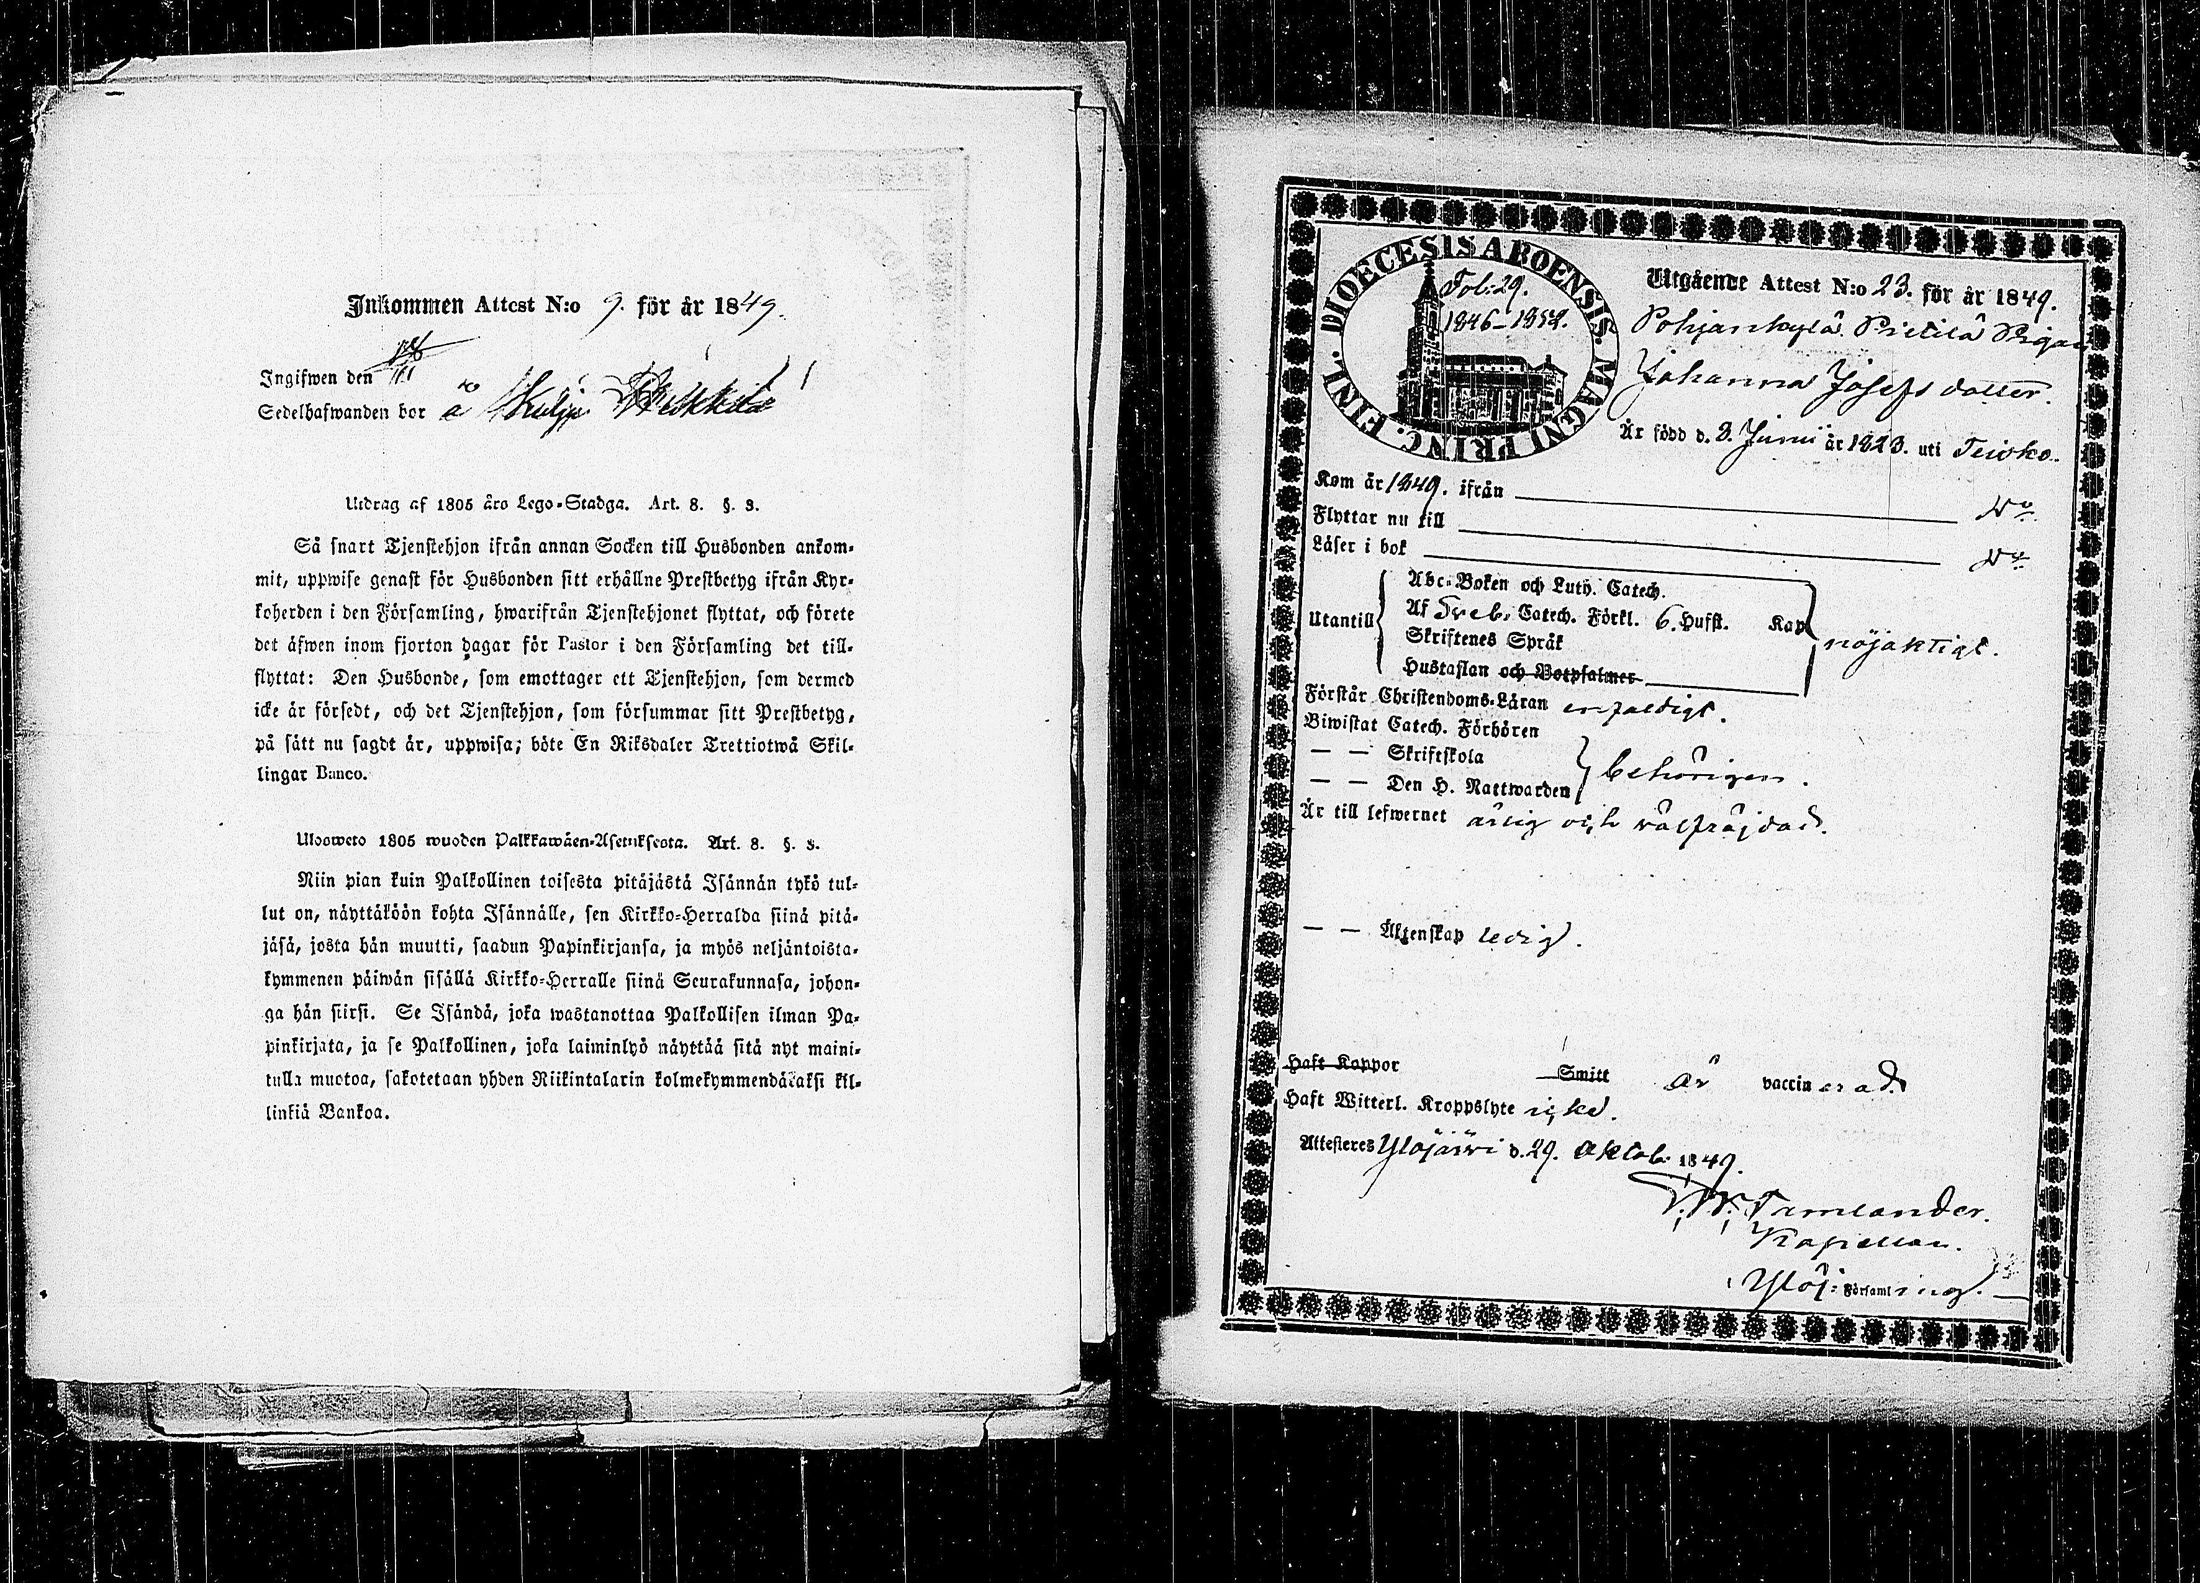 Inkommen Attest N:o 9. för år 1849.
Ingifwen den
Sedelhafwanden bor å Kulju
Utdrag af 1805 års Lego-Stadga. Art. 8. §. 3.
Så snart Tjenstehjon ifrån annan Socken till Husbonden ankom-
mit, uppwise genast för Husbonden sitt erhållne Prestbetyg ifrån Kyr-
koherden i den Församling, hwarifrån Tjenstehjonet flyttat, och förete
det äfwen inom fjorton dagar för Pastor i den Församling det till-
flyttat: Den Husbonde, som emottager ett Tjenstehjon, som dermed
icke är försedt, och det Tjenstehjon, som försummar sitt Prestbetyg,
på sätt nu sagdt är, uppwisa; böte En Riksdaler Trettiotwå Skil-
lingar Banco.
Ulosweto 1805 wuoden Palkkawäen-Asetuksesta. Art. 8. §. 3.
Niin pian kuin Palkollinen toisesta pitäjästä Isännän tykö tul-
lut on, näyttäköön kohta Isännälle, sen Kirkko-Herralda siinä pitä-
jäsä, josta hän muutti, saadun Papinkirjansa, ja myös neljäntoista-
kymmenen päiwän sisällä Kirkko-Herralle siinä Seurakunnasa, johon-
ga hän siirsi. Se Isändä, joka wastanottaa Palkollisen ilman Pa-
pinkirjata, ja se Palkollinen, joka laiminlyö näyttää sitä nyt maini-
tulla muotoa, sakotetaan yhden Riikintalarin kolmekymmendäkaksi kil-
linkiä Bankoa.
DIOECESIS ABOENSIS. MAGNI PRINC. FINL.
Fol: 29.
1846-1852.
Utgående Attest N:o 23. för år 1849.
Pohjankylä Pietilä Pigan
Johanna Josefsdotter.
Är född d. 8. Junii år 1823. uti Teisko.
Kom år 1849. ifrån Do
Flyttar nu till Do
Läser i bok
Abc-Boken och Luth. Catech.
Utantill Af Sveb. Catech. Förkl. 6. Hufst. Kap
Skriftenes Språk nöjaktigt.
Hustaflan och Botpsalmer
Förstår Christendoms-Läran enfaldigt.
Biwistat Catech. Förhören
— — Skriftskola
— — Den H. Nattwarden behörigen.
Är till lefwernet ärlig och välfräjdad.
— — Äktenskap ledig.
Haft Koppor Smitt är vaccinerad.
Haft Witterl. Kroppslyte icke.
Attesteres Ylöjärvi d. 29. Oktob. 1849.
Tamlander.
Kapellan.
Ylöj: Församling.